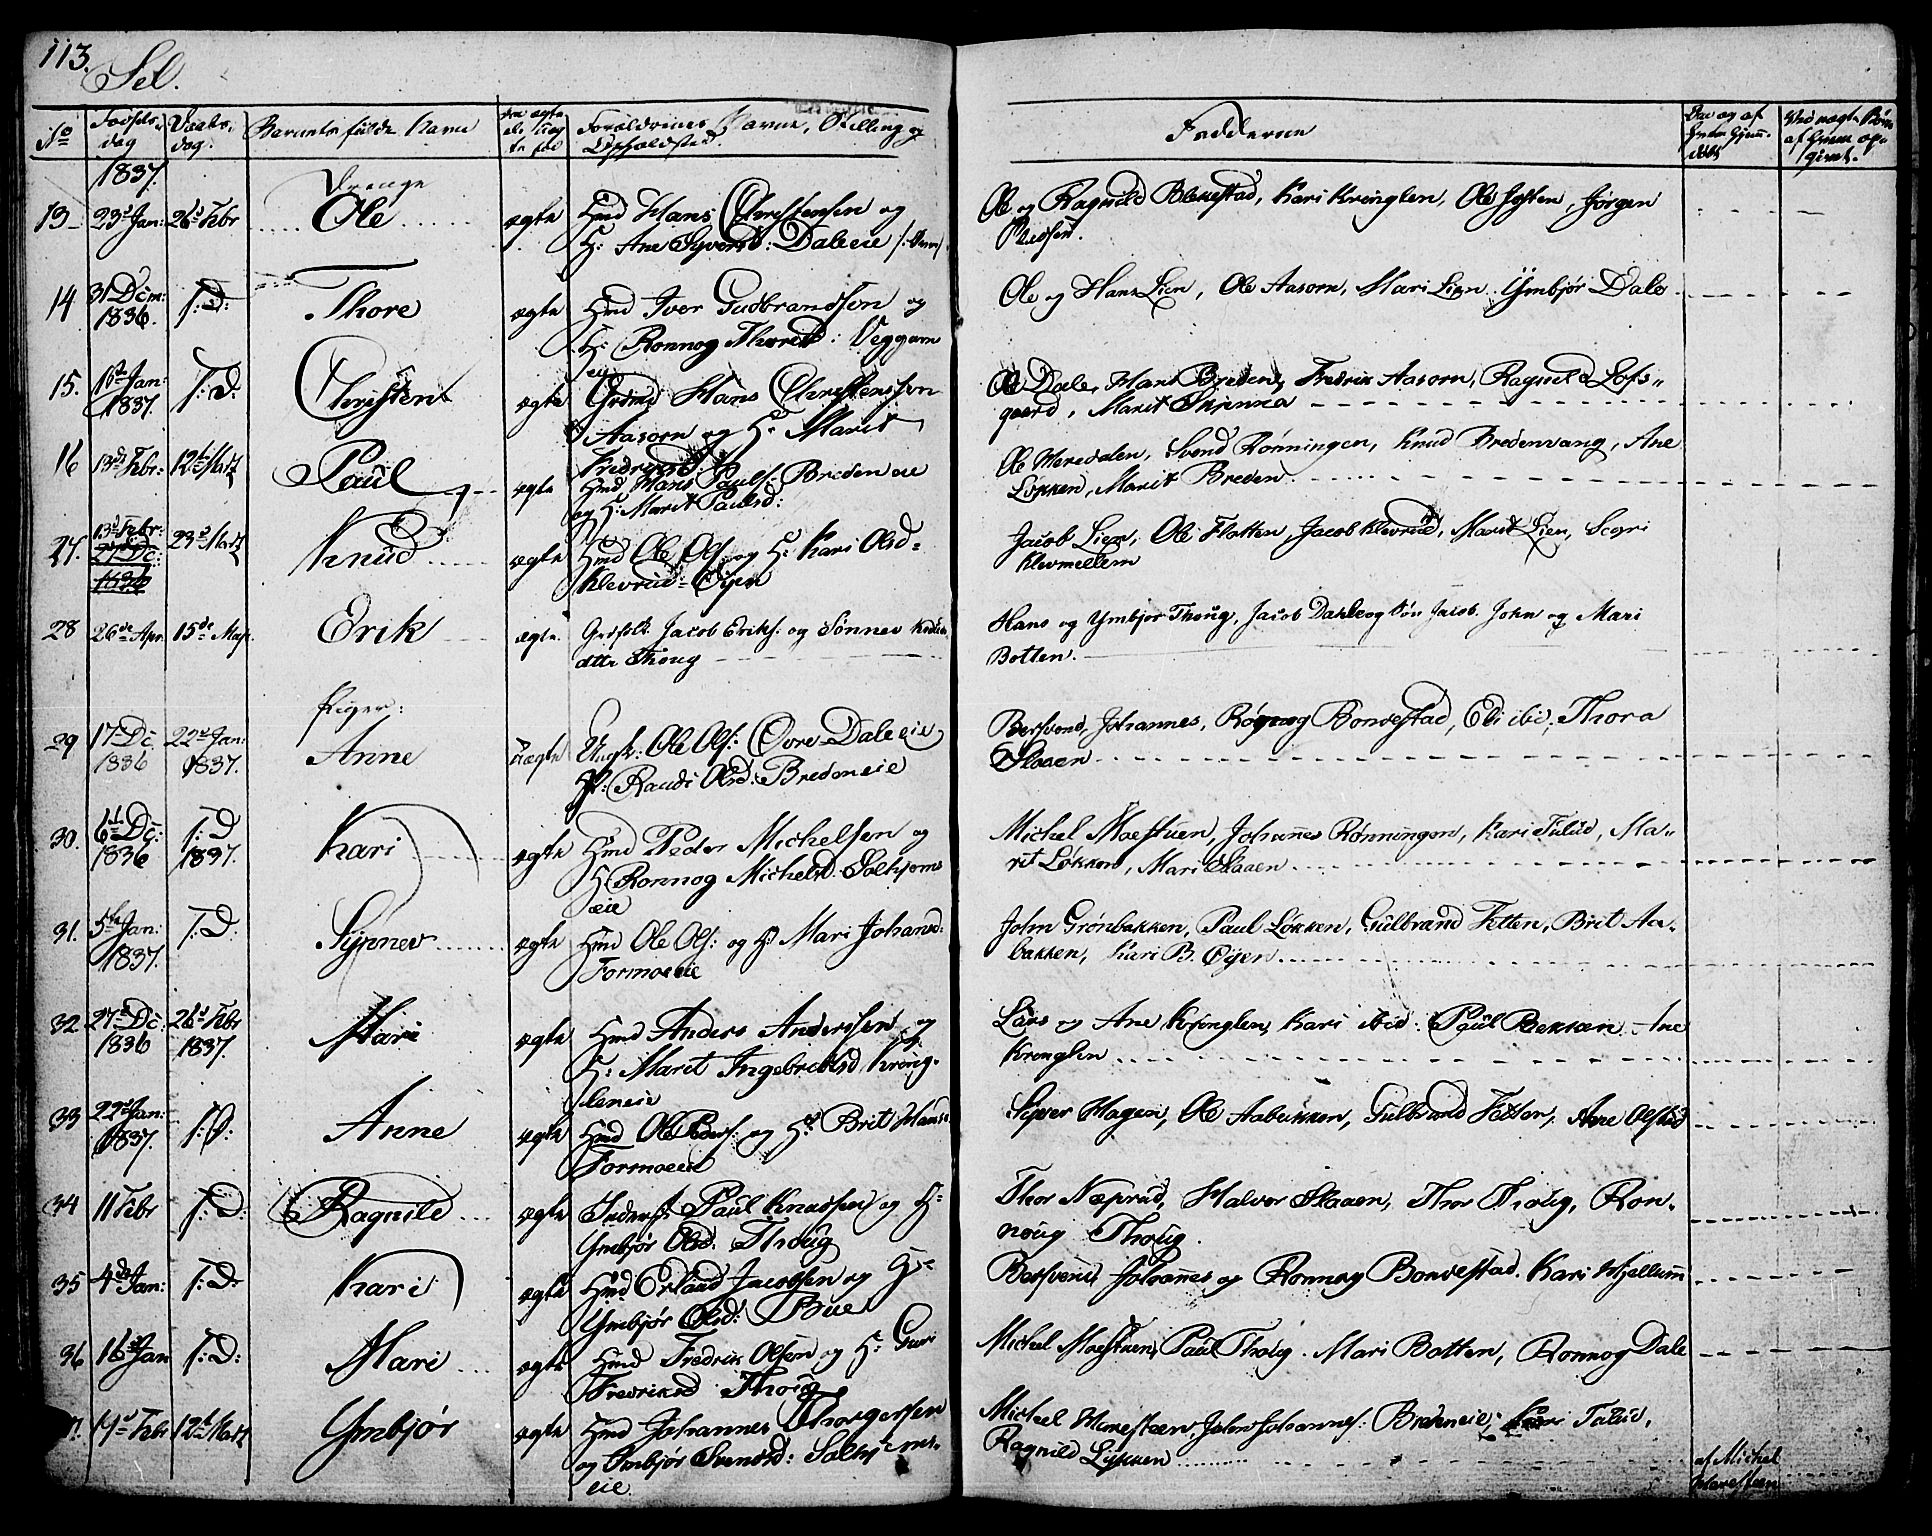 113.
Sel.
No
Fødsels-dag
Daabs-dag.
Barnets fulde Navn
Forældrenes Navne, Stilling og
Opholdsted.
Fadderne
1837.
Drenge
13 23d Jan: 26d Febr Ole ægte Hmd Hans Christensen og
H: Ane Syversd: Daleeie
Ole og Ragnild Blekestad, Kari Kringlen, Ole Josten, Jørgen
14 31 Dcm: 1836. T: D: Thore ægte Hmd Iver Gudbrandsen og
H: Ronnog Thoresd: Veggum
eie
Ole og Hans Lien, Ole Aasorn, Mari Lien. Ymbjør Dale
15. Jan: 1837. T: D. Christen ægte Grdmd Hans Christenssen
Aasorn og H: Marit
Fredriksd:
Ole Dale, Hans Breden, Fredrik Aasorn, Ragnild Lofs-
gaard, Marit Skjenna
16 13d Febr: 12te Martz Paul ægte Hmd Hans Pauls: Bredeneie
og H: Marit Paulsd:
Ole Meredalen, Svend Rønningen, Knud Bredenvang, Ane
Løkken, Marit Breden
27. 13d Febr: 27 Dc: 1836 23d Martz Knud ægte Hmd Ole Ols: og H: Kari Olsd-
Klevrud-Øyen
Jacob Lien, Ole Flatten, Jacob Klevrud, Marit Lien, Segri
Klevmellem
28 26de Apr. 15de Maj. Erik ægte Grdfolk Jacob Eriks: og Sønnev
datter Thoug
Hans og Ymbjør Thoug, Jacob Jacob. John og Mari
Botten.
Piger:
29 17d Dc 1836 22d Jan: 1837. Anne uægte Ungk: Ole Ols: Øvre-Daleeie
P: Randi Olsd: Bredeneie
Bersvend, Johannes, Rønnog Bonvestad, Eli ibid; Thora
Slaaen
30. 6t Dc: 1836 T: D 1837. Kari ægte Hmd Peder Michelsen og
H: Ronnog Michelsd. Solhjem
eie
Michel Moestuen, Johannes Rønningen, Kari Tulud, Ma-
rit Løkken, Mari Slaaen
31. 5te Jan: 1837. T: D. Synnev ægte Hmd Ole Ols: og H: Mari Johansd:
Formoeeie
John Grønbakken, Paul Løkken, Gulbrand Tetten, Brit Aa-
bakken, Kari B. Øyen
32 27d Dc: 1836 26d Febr 1837. Mari ægte Hmd Anders Anderssen og
H: Marit Ingebretsd Kring-
leneie
Lars og Ane Kringlen, Kari ibid: Paul Bekken. Ane
Kringlen
33 22d Jan: 1837. T: D: Anne ægte Hmd Ole Peds: og H: Brit Hansd
Formoeeie
Syver Hagen, Ole Aabakken, Gulbrand Tetten, Ane Olstad
34 11 Febr T: D: Ragnild ægte Inders: Paul Knudsen og H:
Ymbjør Olsd. Thoug
Thor Næprud, Halvor Slaaen, Thor Thoug, Ron-
noug Thoug.
35 4de Jan: T: D. Kari ægte Hmd Erland Jacobsen og H:
Ymbjør Olsd: Bue
Bersvend Johannes og Ronnog Bonvestad. Kari Hjellum
36 16d Jan T: D: Mari ægte Hmd Fredrik Olsen og H: Guri
Fredriksd Thoug
Michel Moestuen, Paul Thoug. Mari Botten, Ronnog Dale
14d Febr 12t Martz Ymbjør ægte Hmd Johannes Thorgersen
og Ymbjør Svendsd: Solhjem-
eie
Michel Horestuen, John Johannes: Bredeneie, Kari Tulud,
Ragnild Løkken
af Michel
Horestuen